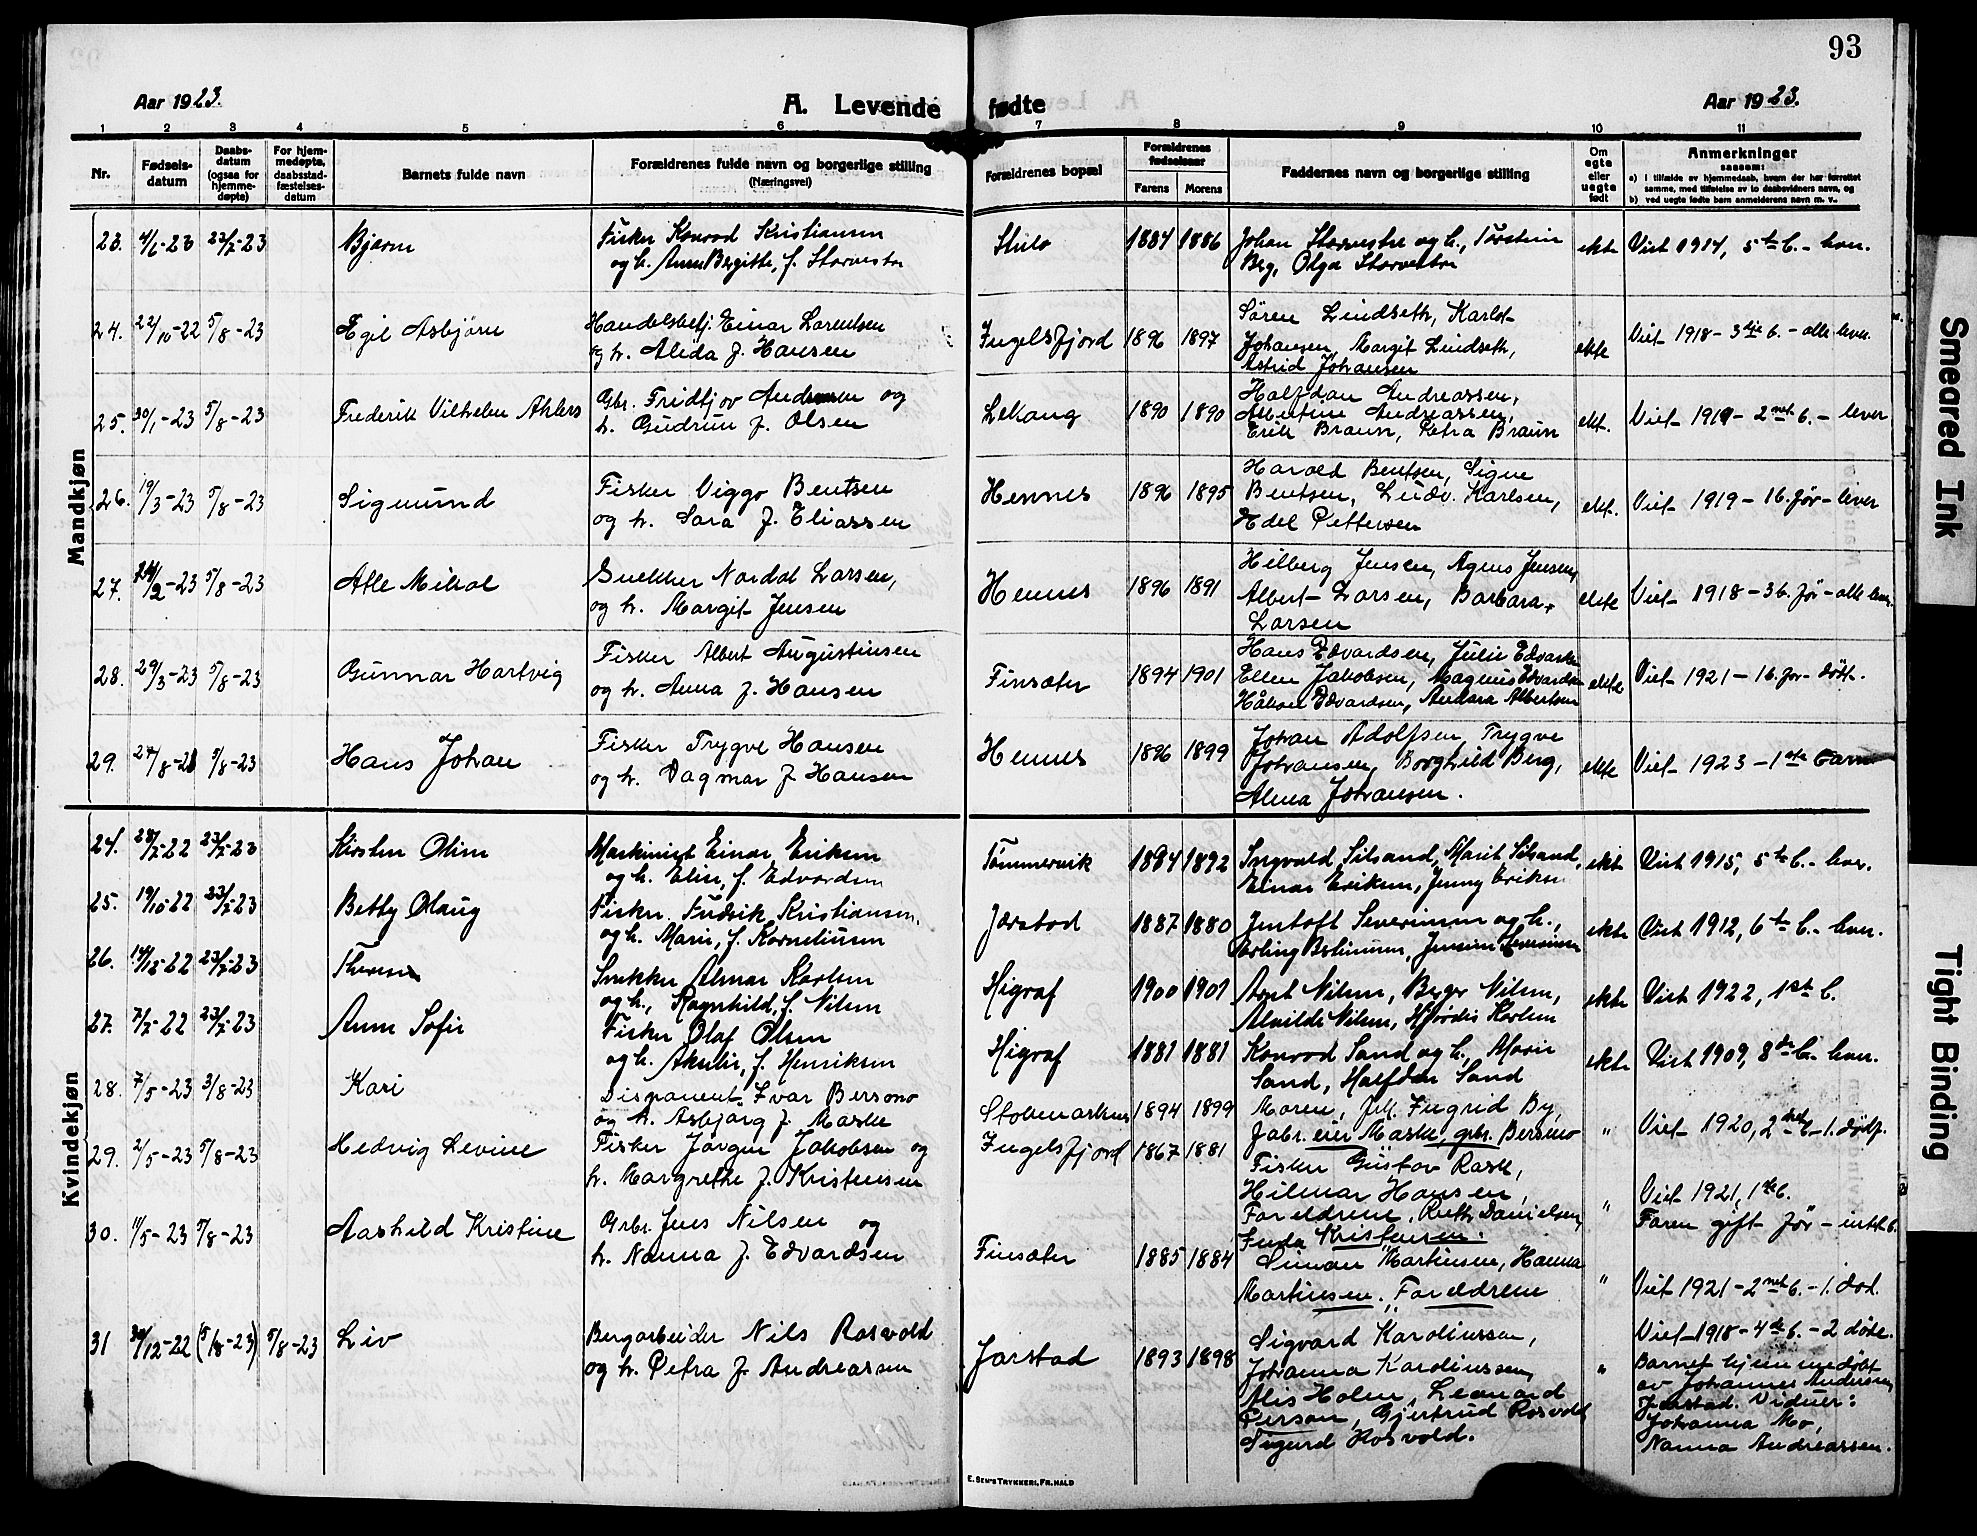 93
Aar 1923.
A. Levende fødte
Aar 1923.
1 2 3 4 5 6 7 8 9 10 11
Nr.
Fødsels-
datum
Daabs-
datum
(ogsaa for
hjemme-
døpte)
For hjem-
medøpte,
daabsstad-
fæstelses-
datum
Barnets fulde navn
Forældrenes fulde navn og borgerlige stilling
(Næringsvei)
Forældrenes bopæl
Forældrenes
fødselsaar
Farens Morens
Faddernes navn og borgerlige stilling
Om
egte
eller
uegte
født
Anmerkninger
saasom:
a) i tilfælde av hjemmedaab, hvem der har forrettet
samme, med tilføielse av to daabsvidners navn, og
b) ved uegte fødte barn anmelderens navn m. v.
Mandkjøn
23. 4/1-23 Bjarne
Fisker Konrad Kristiansen
og h. Anna Bergitte, f. Storvestre
1884 1886
Johan Storvestre og h., Torstein
Berg, Olga Storvestre
ekte
Viet 1914, 5te b. - lever.
24. 22/10-22 5/8-23 Egil Asbjørn
Handelsbetj. Einar Lorentsen
og h. Alida f. Hansen
Ingelsfjord 1896 1897
Søren Lindseth, Karlot
Johansen, Margit Lindseth,
Astrid Johansen
ekte
Viet 1918 - 3die b. - alle lever.
25. 30/1-23 5/8-23 Frederik Vilhelm Ahlers
Gbr. Fridtjov Andersen og
h. Gudrun f. Olsen
Lekang 1890 1890
Halfdan Andreassen,
Albertine Andreassen,
Erik Braun, Petra Braun
ekt.
Viet 1919 - 2net b. - lever
26. 19/3-23 5/8-23 Sigmund
Fisker Viggo Bentsen
og h. Sara f. Eliassen
Hennes 1896 1895
Harald Bentsen, Signe
Bentsen, Ludv. Karlsen,
Edel Pettersen
ekt.
Viet 1919 - 1 b. før - lever
27. 24/2-23 5/8-23 Atle Mikal
Snekker Nordal Larsen,
og h. Margit Jensen
Hennes 1896 1891
Hilberg Jensen, Agnes Jensen,
Albert Larsen, Barbara
Larsen
ekte
Viet 1918 - 3 b. før - alle lever.
28. 29/3-23 5/8-23 Gunnar Hartvig
Fisker Albert Augustinsen
og h. Anna f. Hansen
Finsæter 1894 1901
Hans Edvardsen, Julie Edvardsen
Ellen Jakobsen, Magnus Edvardsen
Håkon Edvardsen, Andara Albertsen
ekte
Viet 1921 - 1 b. før - dødt.
29. 5/8-23 Hans Johan
Fisker Trygve Hansen
og h. Dagmar f. Hansen
Hennes 1896 1899
Johan Adolfsen, Trygve
Johansen, Borghild Berg,
Alma Johansen.
ekte
Viet 1923 - 1ste barn
Kvindekjøn
24. Kirsten Oline
Maskinist Einar Eriksen
og h. Elise, f. Edvardsen
Tømmervik 1884 1892
Ingvald Silsand, Marit Silsand,
Einar Eriksen, Jenny Eriksen
ekte
Viet 1915, 5te b. - lever.
25. 19/10-22 Betty Olaug
Fisker Fredrik Kristiansen,
og h. Marie, f. Korneliussen
Jørstad 1887 1880
Jentoft Severinsen og h.,
ekte
Viet 1912, 6te b. - lever.
26. 14/12-22
Snekker Almar Karlsen
og h., Ragnhild, f. Nilsen
Higraf 1900 1901
Arnt Nilsen, Berger Nilsen,
Alvilde Nilsen, Hjørdis Karlsen
ekte
Viet 1922, 1st b.
27. Anne Sofie
Fisker Olaf Olsen
og h. f. Henriksen
Higraf 1881 1881
Konrad Sand og h., Marie
Sand, Halfdan Sand
ekte
Viet 1909, 8de b. - lever.
28. 7/5-23 3/8-23 Kari
Disponent Ivar Bersono
og h. Asbjørg f. Maske
Stokmarknes 1894 1899
Maren, frk. Ingrid By,
fabr.eier Maske, gbr. Bersono
"
Viet 1920, 2net b - 1. dødf.
29. 2/5-23 5/8-23 Hedvig Levine
Fisker Jørgen Jakobsen og
h. Margrethe f. Kristensen
Ingelsfjord 1867 1881
Fisker Gustav Rask,
Hilmar Hansen,
Foreldrene, Ruth Danielsen,
Frida Kristensen.
"
Viet 1921, 1ste b.
Faren gift før - intet b.
30. 11/5-23 5/8-23 Aashild Kristine
Grbr. Jens Nilsen og
h. Nanna f. Edvardsen
Finsæter 1885 1884
Simon Martinsen, Hanna
Martinsen, Foreldrene
"
Viet 1921 - 2net b. - 1. død.
31 30/12-22 (5/8-23) 5/8-23 Liv
Bergarbeider Nils Rosvold
og h. Petra f. Andreassen
Jørstad 1893 1898
Sigvard Karoliussen,
Johanna Karoliussen,
Alis Holm, Leonard
Person, Gjertrud Rosvold
Sigurd Rosvold.
"
Viet 1918 - 4de b. - 2 døde.
Barnet hjemmedøbt
av Johannes Andersen,
Jørstad. Vidner:
Johanna Mo,
Nanna Andreassen.
E. SEM'S TRYKKERI, FR.HALD
Smeared Ink
Tight Binding